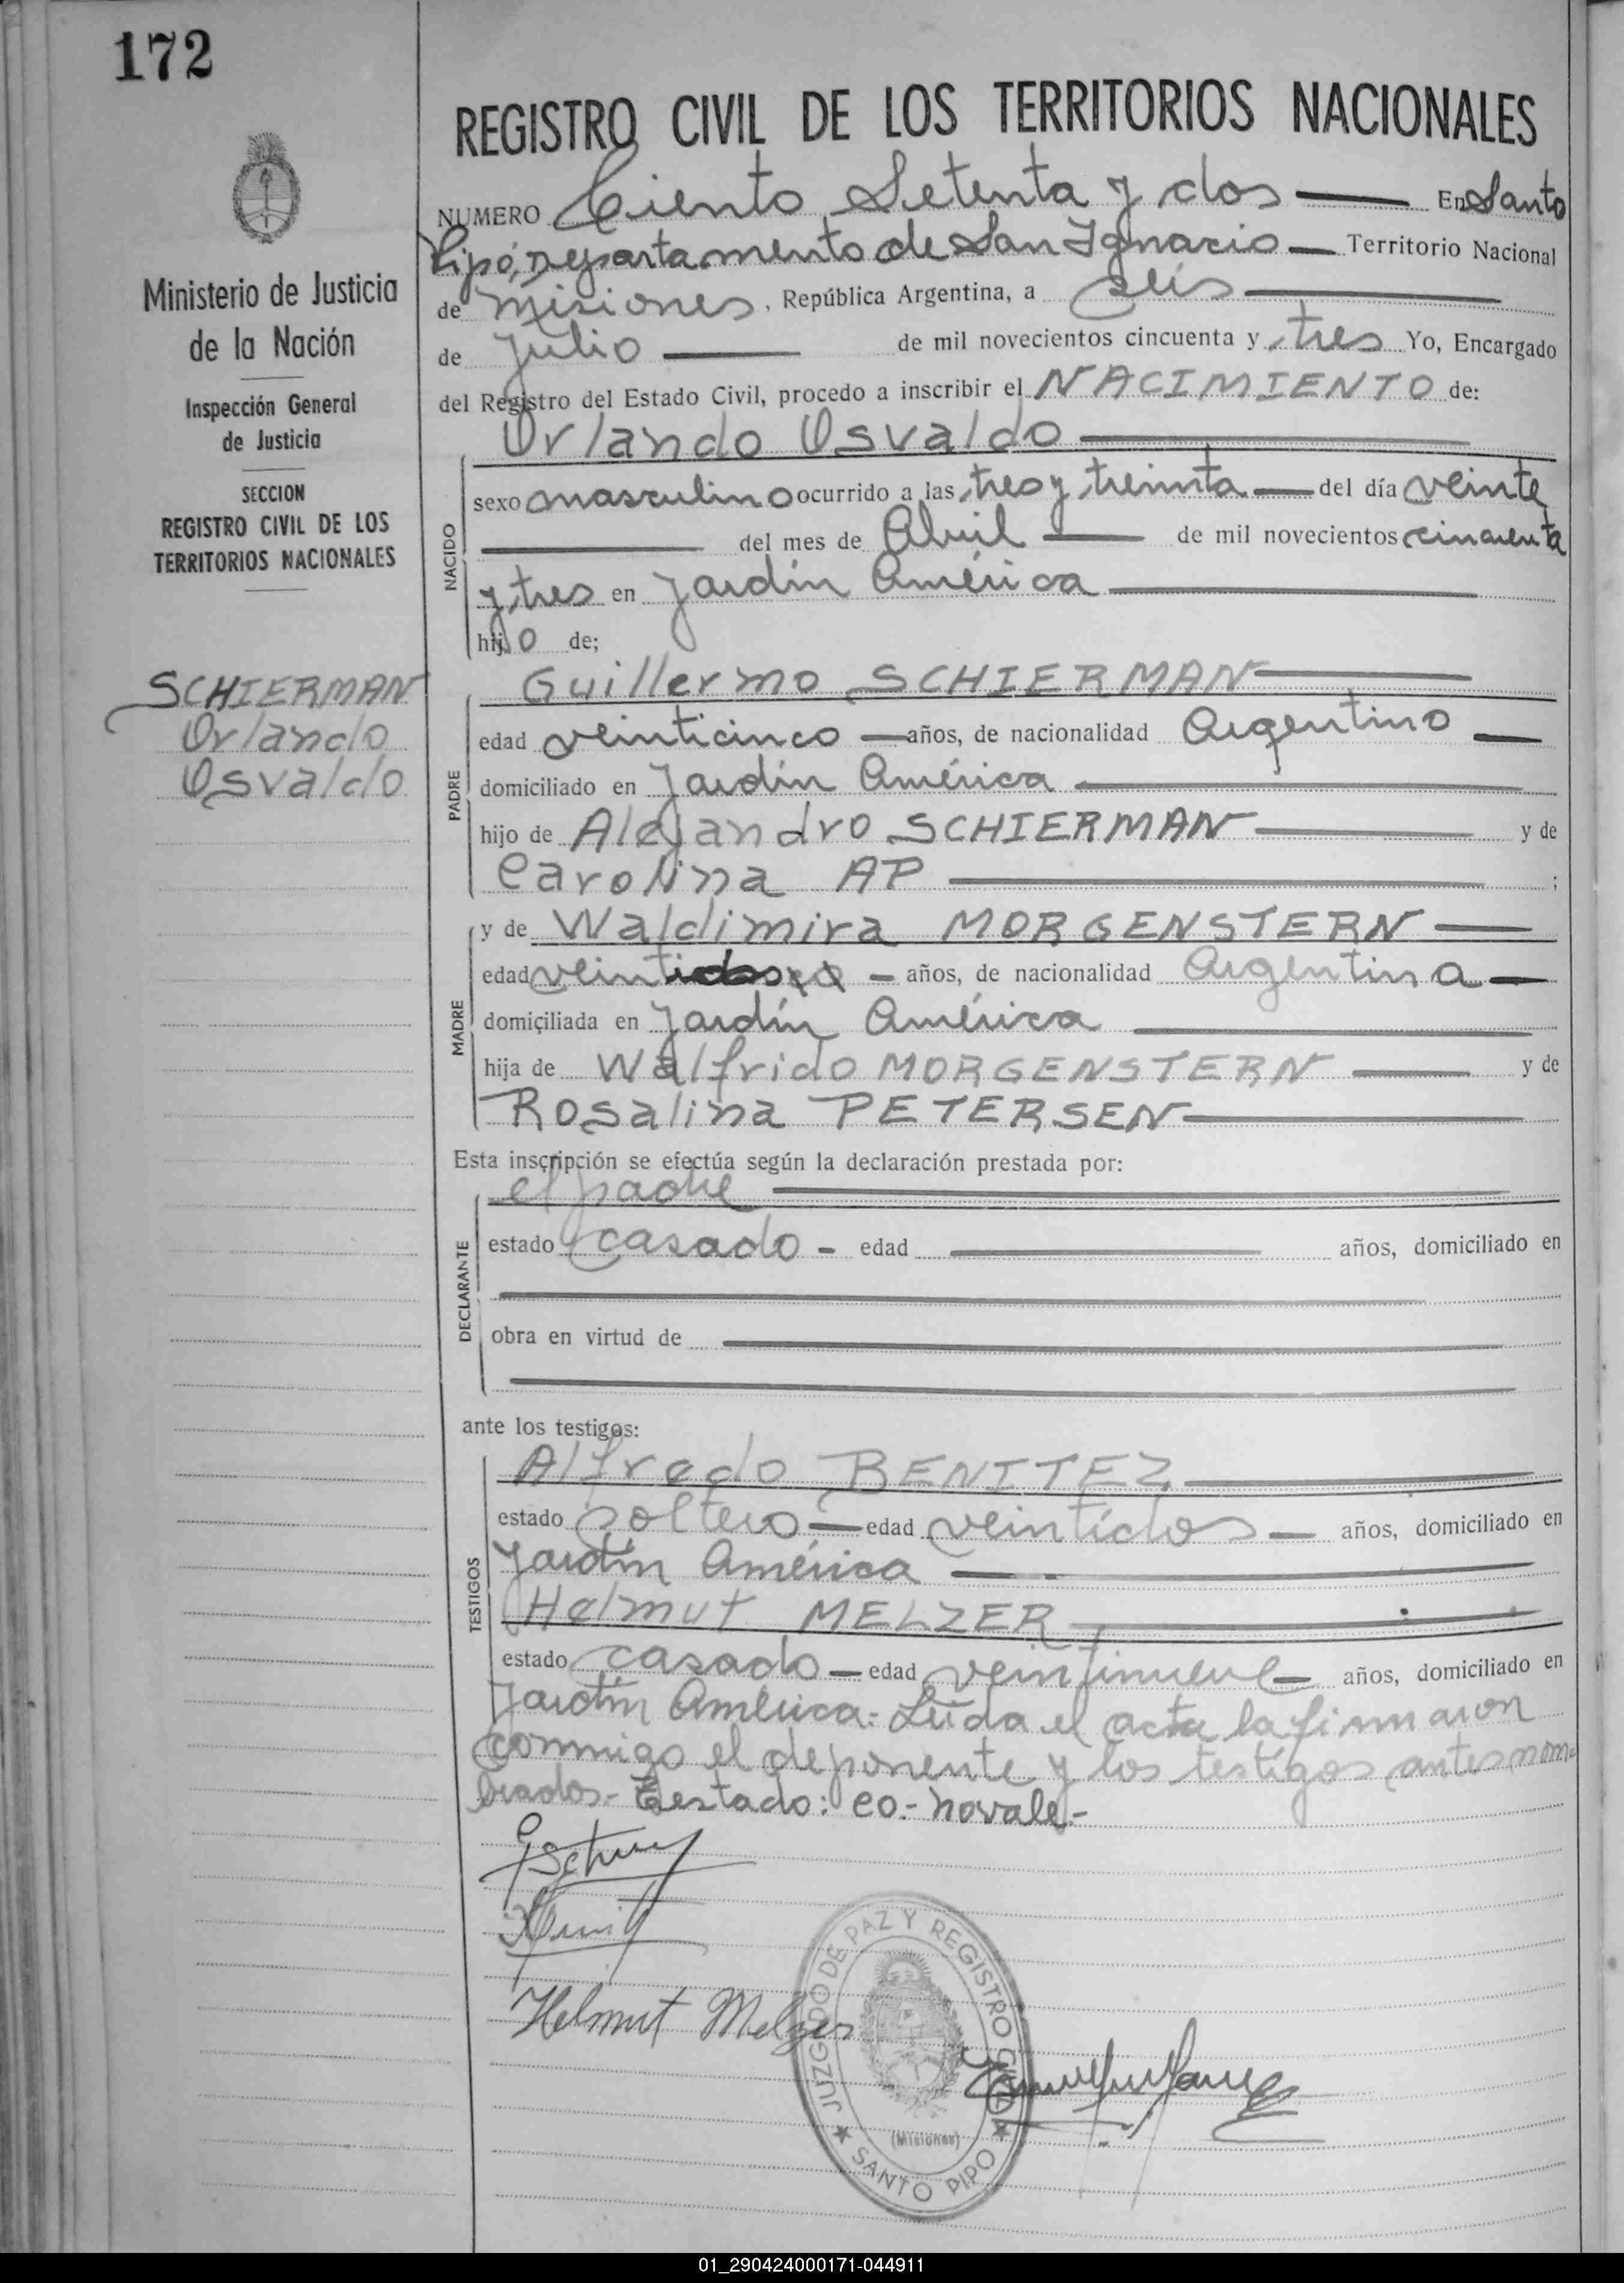 172
REGISTRO CIVIL DE LOS TERRITORIOS NACIONALES
NUMERO Ciento Setenta y dos — En Santo
Pipó, Departamento de San Ignacio — Territorio Nacional
de Misiones, República Argentina, a seis —
de Julio — de mil novecientos cincuenta y tres Yo, Encargado
del Registro del Estado Civil, procedo a inscribir el NACIMIENTO de:
Orlando Osvaldo —
Ministerio de Justicia
de la Nación
Inspección General
de Justicia
SECCION
REGISTRO CIVIL DE LOS
TERRITORIOS NACIONALES
SCHIERMAN
Orlando
Osvaldo
NACIDO
sexo masculino ocurrido a las tres y treinta — del día veinte
— del mes de Abril — de mil novecientos cincuenta
y tres en Jardín América —
hijo de;
Guillermo SCHIERMAN —
PADRE
edad veinticinco — años, de nacionalidad Argentino —
domiciliado en Jardín América —
hijo de Alejandro SCHIERMAN — y de
Carolina AP — ;
y de Waldimira MORGENSTERN —
MADRE
edad veintidos — años, de nacionalidad Argentina —
domiciliada en Jardín América —
hija de Walfrido MORGENSTERN — y de
Rosalina PETERSEN —
Esta inscripción se efectúa según la declaración prestada por:
el padre —
DECLARANTE
estado casado - edad — años, domiciliado en
—
obra en virtud de —
—
ante los testigos:
Alfredo BENITEZ —
TESTIGOS
estado soltero — edad veintidos — años, domiciliado en
Jardín América —
Helmut MELZER —
estado casado — edad veintinueve — años, domiciliado en
Jardín América.- Leída el acta la firmaron
conmigo el deponente y los testigos antes nom-
brados.- Testado: eo.- no vale.-
Helmut Melzer
JUZGADO DE PAZ Y REGISTRO CIVIL
(Misiones)
★ SANTO PIPO ★
01_290424000171-044911